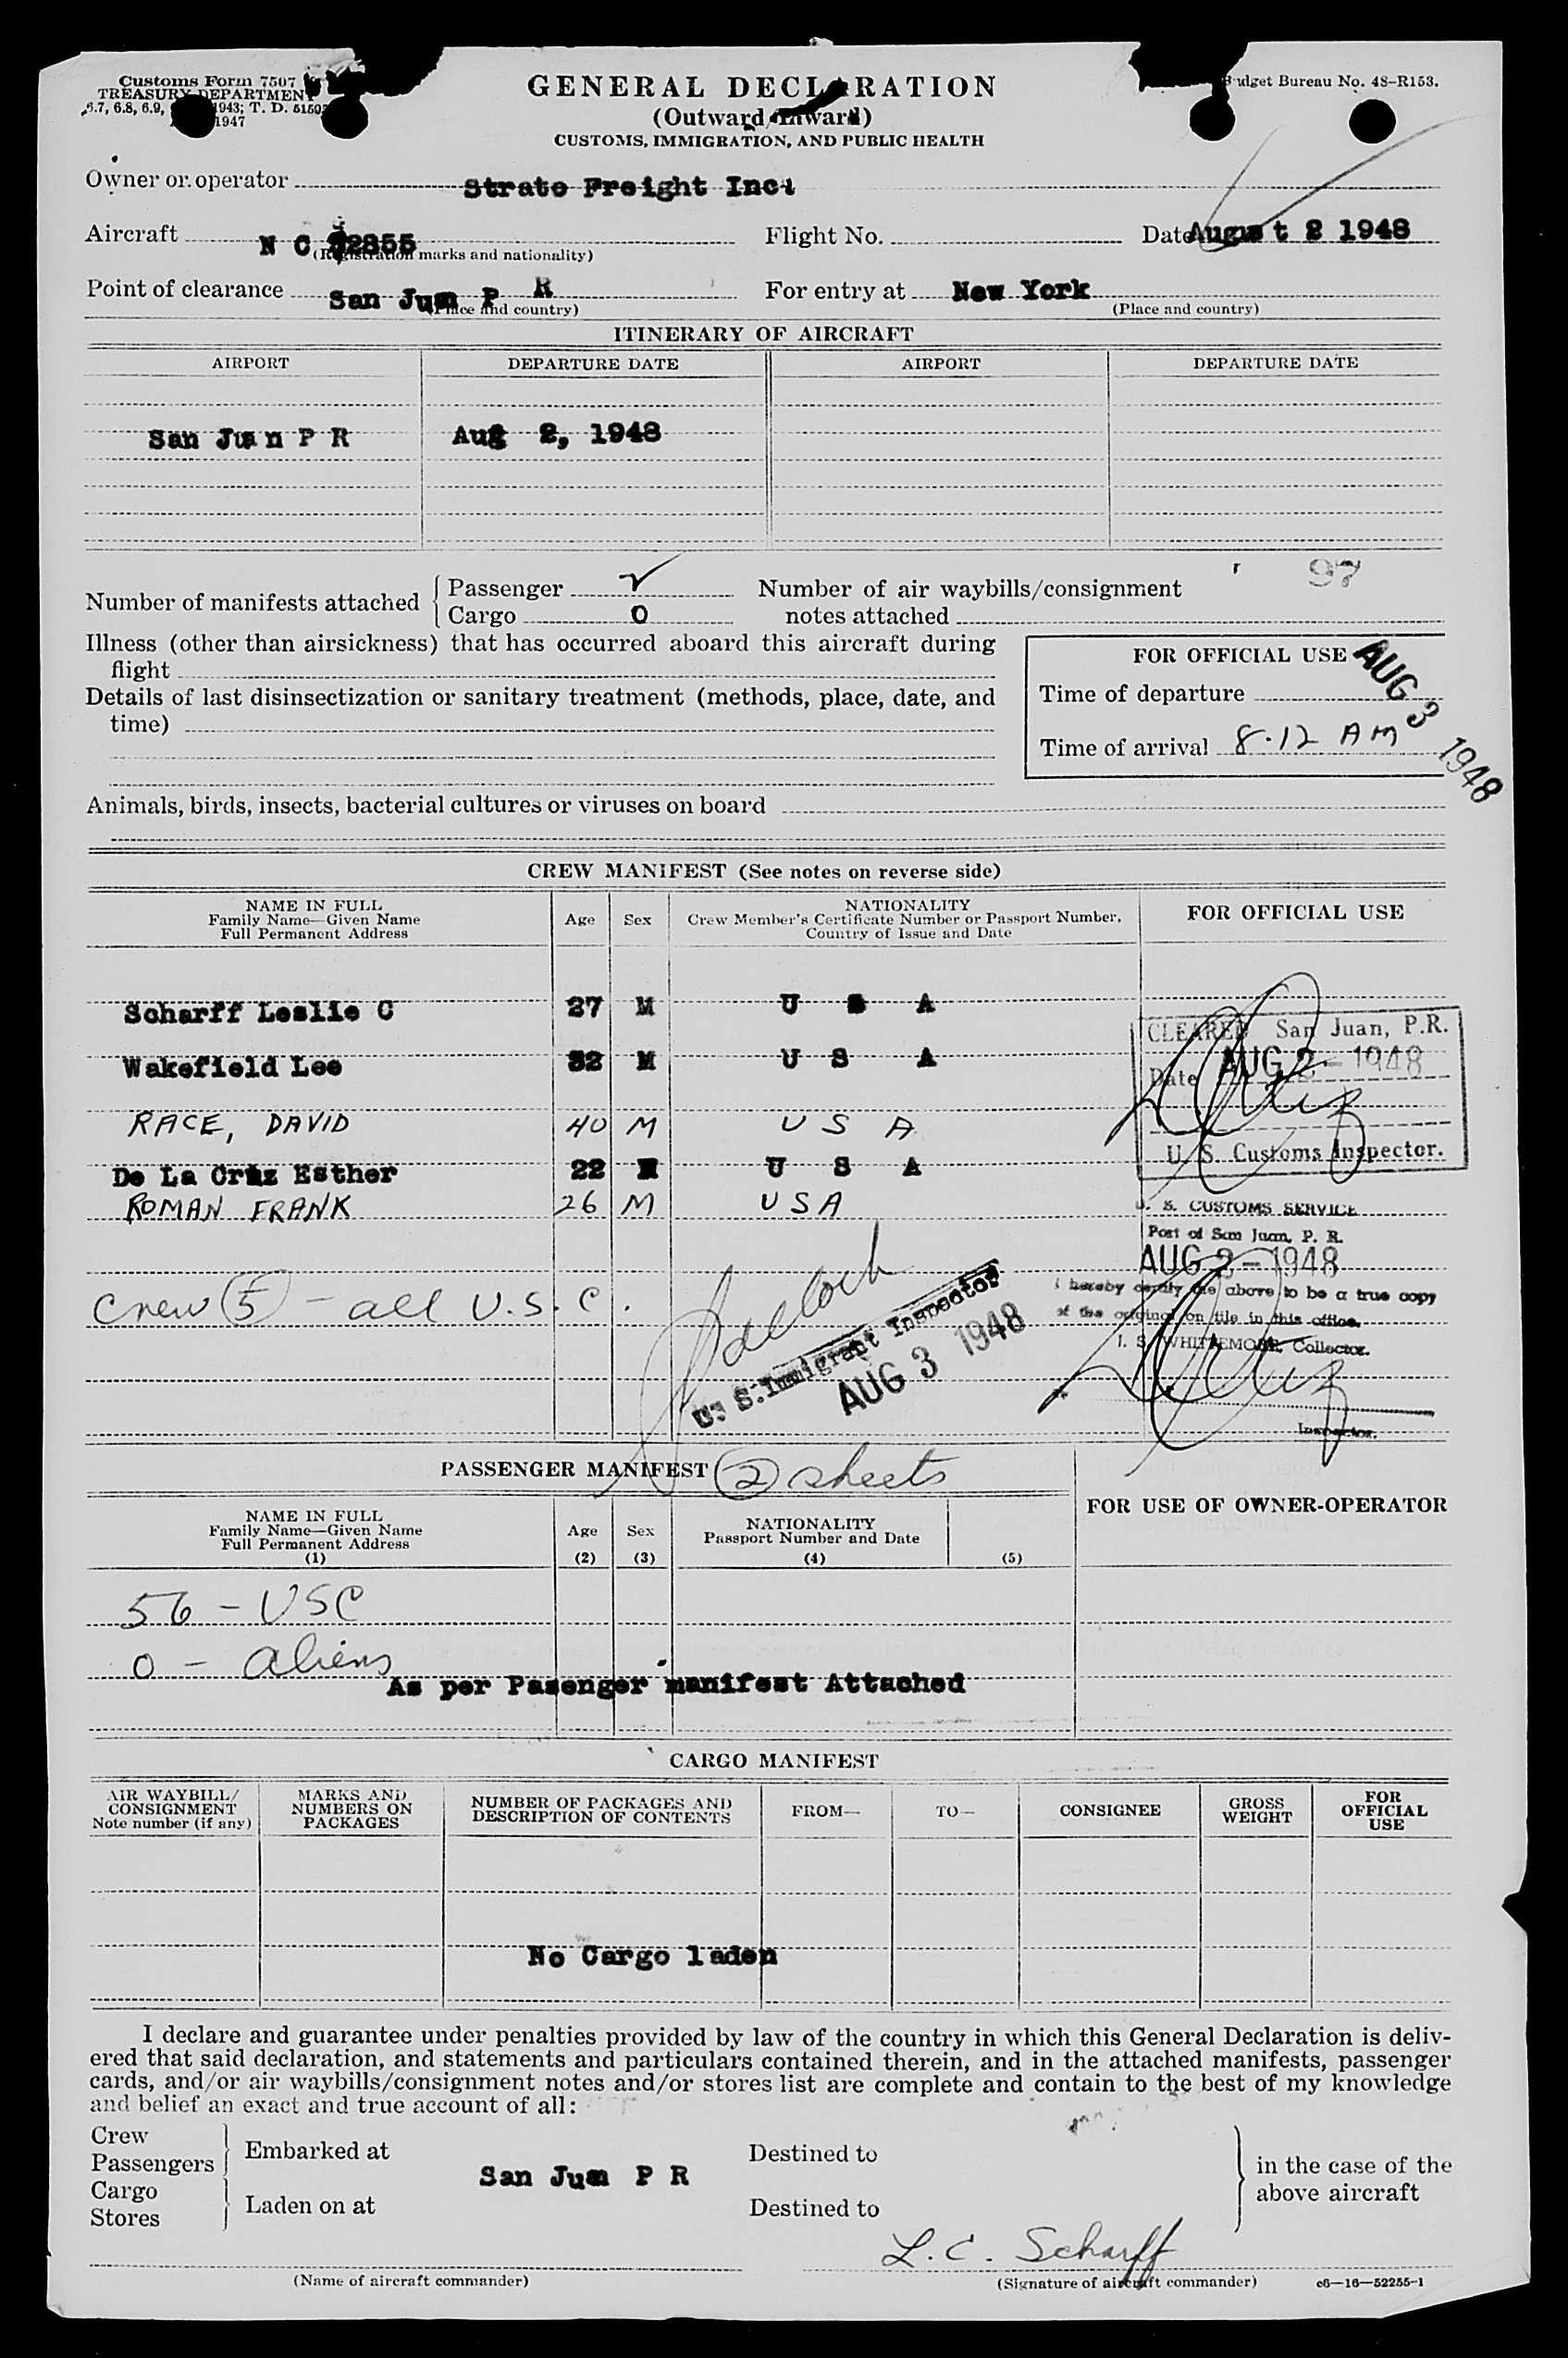 Customs Form 7507
TREASURY DEPARTMENT
6.7, 6.8, 6.9, 1943; T. D.
1947
GENERAL DECLARATION
(Outward/Inward)
CUSTOMS, IMMIGRATION, AND PUBLIC HEALTH
Budget Bureau No. 48-R153.
Owner or operator Strato Freight Inc.
Aircraft N C 2855 Flight No. Date August 2 1948
(Registration marks and nationality)
Point of clearance San Juan P R For entry at New York
(Place and country) (Place and country)
ITINERARY OF AIRCRAFT
AIRPORT DEPARTURE DATE AIRPORT DEPARTURE DATE
San Juan P R Aug 2, 1948
97
Number of manifests attached Passenger Number of air waybills/consignment
Cargo 0 notes attached
Illness (other than airsickness) that has occurred aboard this aircraft during
flight
Details of last disinsectization or sanitary treatment (methods, place, date, and
time)
FOR OFFICIAL USE
Time of departure
Time of arrival 8.12 AM
AUG 3 1948
Animals, birds, insects, bacterial cultures or viruses on board
CREW MANIFEST (See notes on reverse side)
NAME IN FULL
Family Name—Given Name
Full Permanent Address
Age
Sex
NATIONALITY
Crew Member's Certificate Number or Passport Number.
Country of Issue and Date
FOR OFFICIAL USE
Scharff Leslie C 27 M U S A
Wakefield Lee 32 M U S A
RACE, DAVID 40 M U S A
De La Cruz Esther 22 U S A
ROMAN FRANK 26 M USA
CLEARED San Juan, P.R.
Date AUG 2 - 1948
U. S. Customs Inspector.
U. S. CUSTOMS SERVICE
Port of San Juan, P. R.
AUG 2 - 1948
I hereby certify the above to be a true copy
of the original on file in this office.
WHITTEMORE, Collector.
Inspector.
Crew (5) - all U.S.C.
U. S. Immigrant Inspector
AUG 3 1948
PASSENGER MANIFEST (2) sheets
FOR USE OF OWNER-OPERATOR
NAME IN FULL
Family Name—Given Name
Full Permanent Address
(1)
Age
(2)
Sex
(3)
NATIONALITY
Passport Number and Date
(4)
(5)
56 - USC
0 - aliens
As per Pasenger manifest Attached
CARGO MANIFEST
AIR WAYBILL/
CONSIGNMENT
Note number (if any)
MARKS AND
NUMBERS ON
PACKAGES
NUMBER OF PACKAGES AND
DESCRIPTION OF CONTENTS
FROM—
TO—
CONSIGNEE
GROSS
WEIGHT
FOR
OFFICIAL
USE
No Cargo laden
I declare and guarantee under penalties provided by law of the country in which this General Declaration is deliv-
ered that said declaration, and statements and particulars contained therein, and in the attached manifests, passenger
cards, and/or air waybills/consignment notes and/or stores list are complete and contain to the best of my knowledge
and belief an exact and true account of all:
Crew
Passengers
Embarked at
San Juan P R
Destined to
Cargo
Stores
Laden on at
Destined to
in the case of the
above aircraft
L. C. Scharff
(Name of aircraft commander)
(Signature of aircraft commander)
c6—16—52255-1